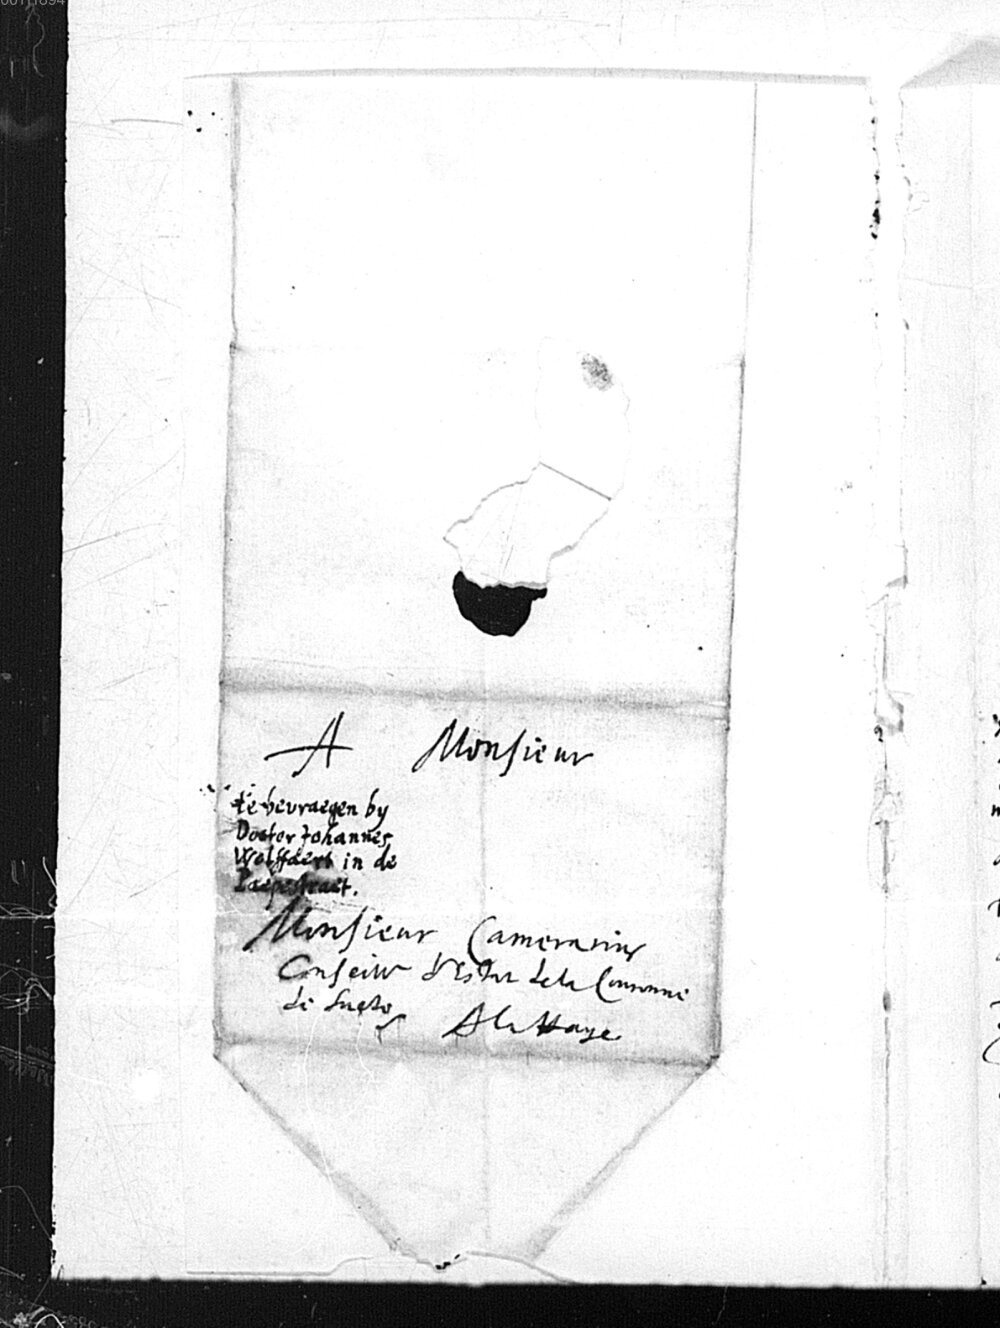 A Monsieur
te bevraegen by
Doctor Johannes
Wolffaert in de
Papestraet.
Monsieur Camerarius
Conseiller d'Estat de la Couronne
de Suede
A la Haye